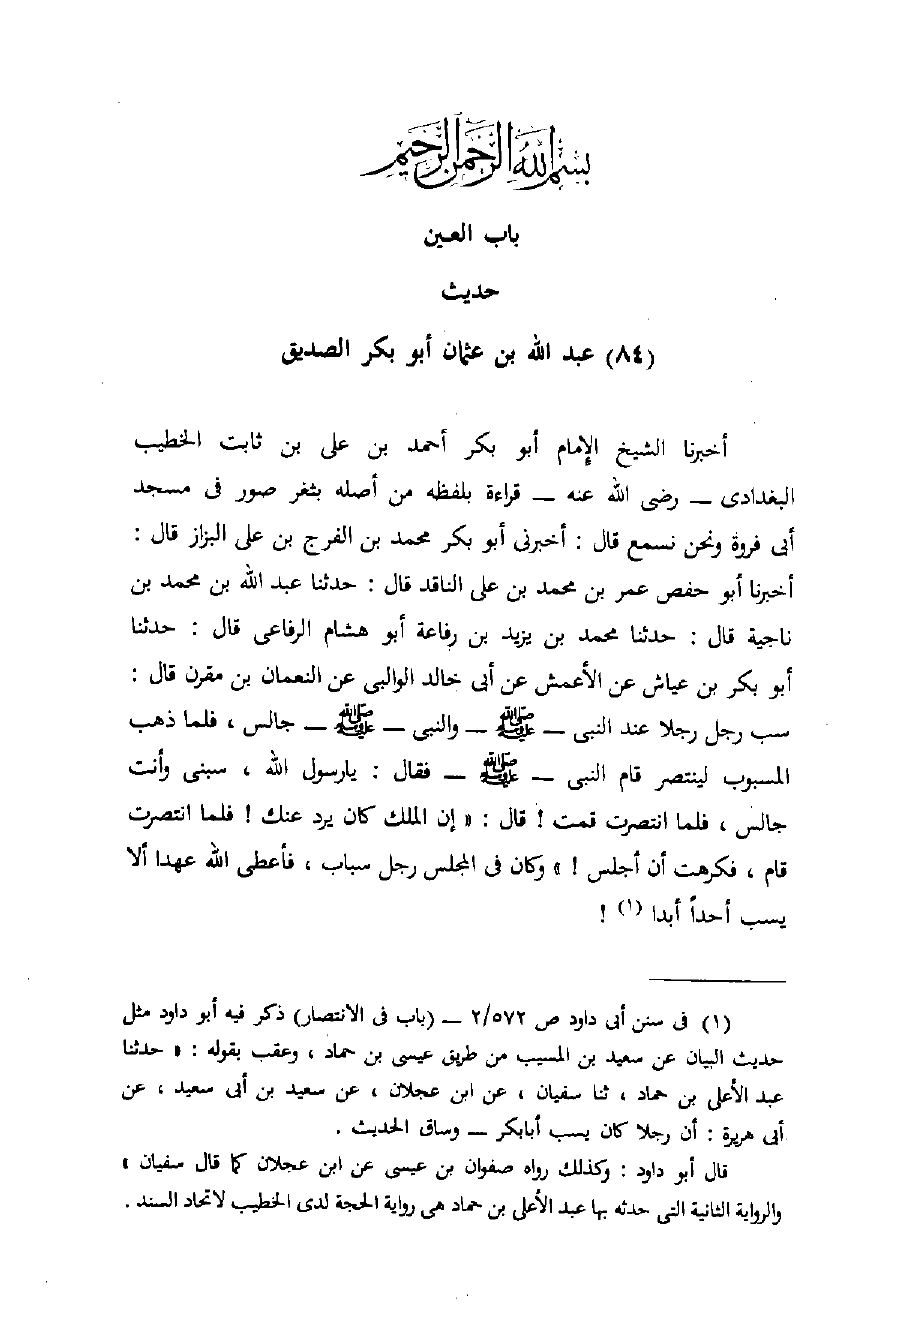 بسم الله الرحمن الرحيم
باب العين
حديث
(٨٤) عبد الله بن عثمان أبو بكر الصديق
أخبرنا الشيخ الإمام أبو بكر أحمد بن على بن ثابت الخطيب
البغدادى ــ رضى الله عنه ــ قراءة بلفظه من أصله بثغر صور فى مسجد
أبى فروة ونحن نسمع قال : أخبرنى أبو بكر محمد بن الفرج بن على البزاز قال :
أخبرنا أبو حفص عمر بن محمد بن على الناقد قال : حدثنا عبد الله بن محمد بن
ناجية قال : حدثنا محمد بن يزيد بن رفاعة أبو هشام الرفاعى قال : حدثنا
أبو بكر بن عياش عن الأعمش عن أبى خالد الوالبى عن النعمان بن مقرن قال :
سب رجل رجلا عند النبى ــ ﷺ ــ والنبى ــ ﷺ ــ جالس ، فلما ذهب
المسبوب لينتصر قام النبى ــ ﷺ ــ فقال : يارسول الله ، سبنى وأنت
جالس ، فلما انتصرت قمت ! قال : « إن الملك كان يرد عنك ! فلما انتصرت
قام ، فكرهت أن أجلس ! » وكان فى المجلس رجل سباب ، فأعطى الله عهدا ألا
يسب أحداً أبدا (١) !
(١) فى سنن أبى داود ص ٢/٥٧٢ ــ (باب فى الانتصار) ذكر فيه أبو داود مثل
حديث البيان عن سعيد بن المسيب من طريق عيسى بن حماد ، وعقب بقوله : « حدثنا
عبد الأعلى بن حماد ، ثنا سفيان ، عن ابن عجلان ، عن سعيد بن أبى سعيد ، عن
أبى هريرة : أن رجلا كان يسب أبابكر ــ وساق الحديث .
قال أبو داود : وكذلك رواه صفوان بن عيسى عن ابن عجلان كما قال سفيان »
والرواية الثانية التى حدثه بها عبد الأعلى بن حماد هى رواية الحجة لدى الخطيب لاتحاد السند .